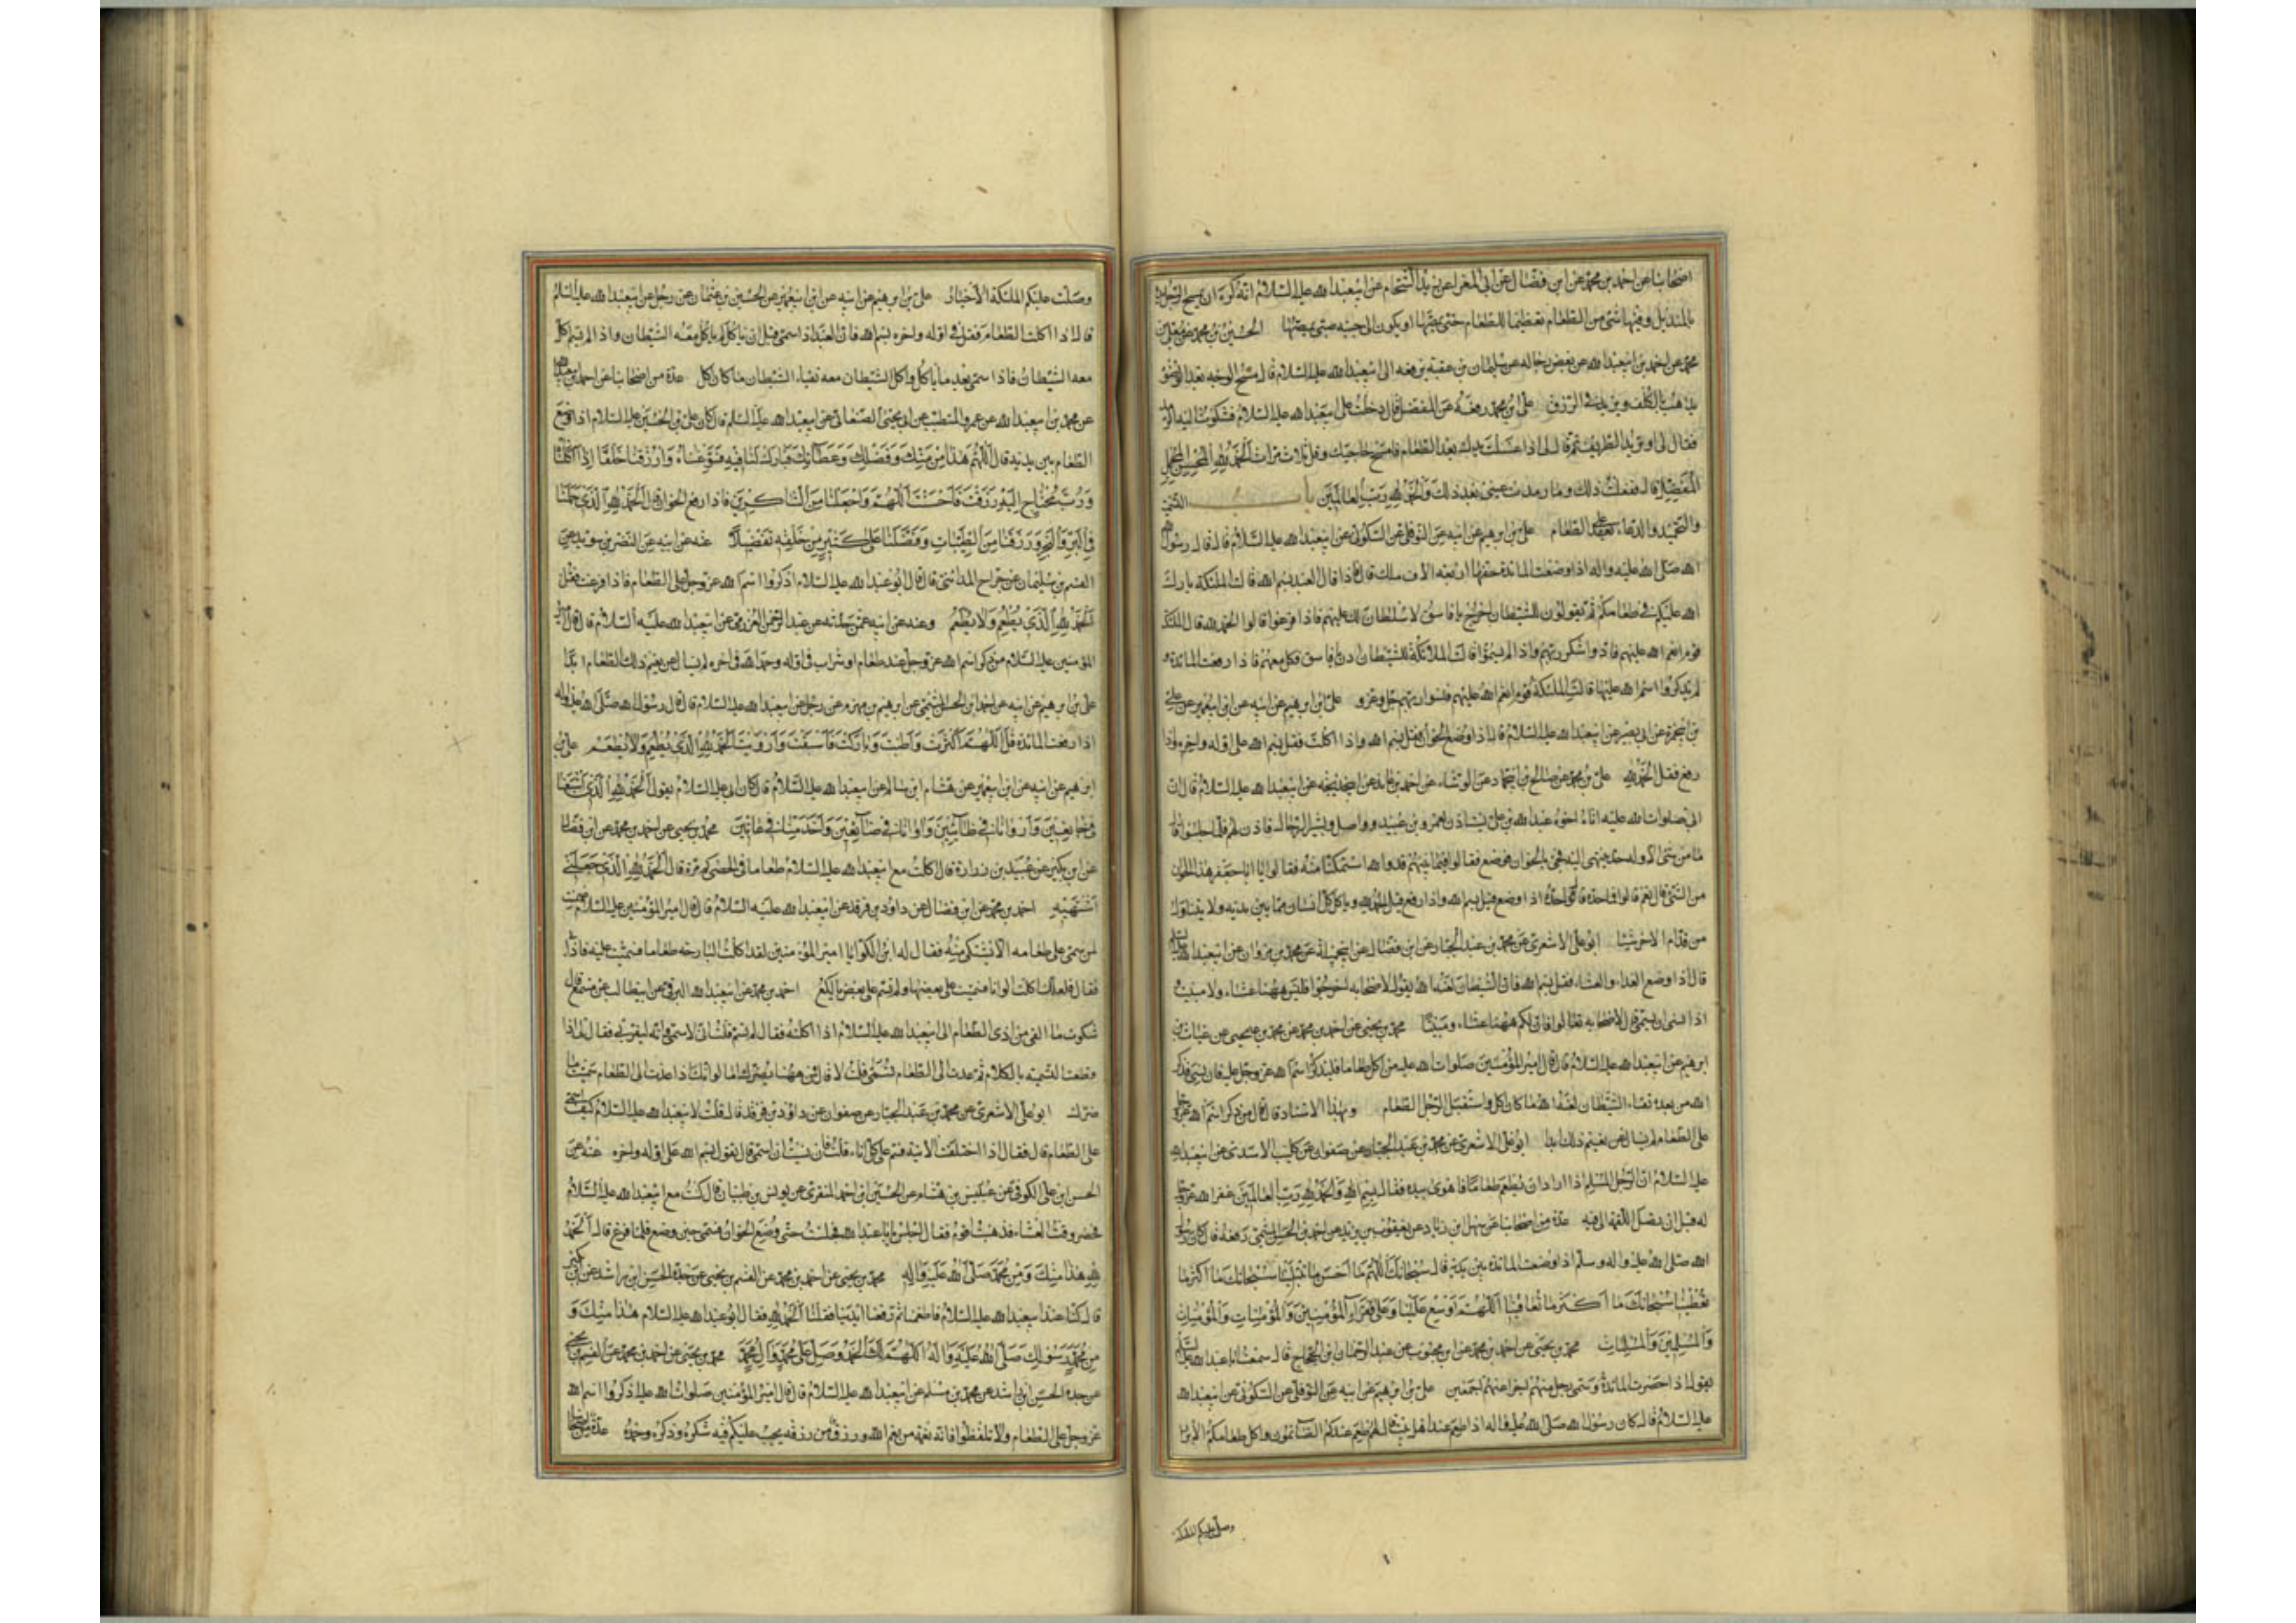 اصحابنا عن احمد بن محمد عن ابن فضال عن ابى المغرا عن زيد الشحام عن ابيعبدا لله عليه السلام انه كره ان يمسح الرجل يده
بالمنديل وفيها شئ من الطعام تعظيما للطعام حتى يمصها او يكون الى جنبه صبى يمصها الحسين بن محمد عن معلى بن
محمد عن احمد بن ابيعبدا لله عن بعض رجاله عن سليمان بن عقبة رفعه الى ابيعبدا لله عليه السلام قال مسح الوجه بعد الوضوء
يذهب بالكلف ويزيد فى الرزق على بن محمد رفعه عن المفضل قال دخلت على ابيعبدا لله عليه السلام فشكوت اليه الرمد
فقال لى او تريد الطريف ثم قال لى اذا غسلت يدك بعد الطعام فامسح حاجبيك وقل ثلاث مرات الحمد لله المحسن المجمل
المفضل قال ففعلت ذلك وما رمدت عينى بعد ذلك والحمد لله رب العالمين باب التسمية
والتحميد والدعاء على الطعام على بن ابرهيم عن ابيه عن النوفلى عن السكونى عن ابيعبدا لله عليه السلام قال قال رسول
الله صلى الله عليه واله اذا وضعت المائدة حفها اربعة الاف ملك قال فاذا قال العبد بسم الله قالت الملئكة بارك
الله عليكم فى طعامكم ثم يقولون للشيطان اخرج يا فاسق لا سلطان لك عليهم فاذا فرغوا قالوا الحمد لله قال الملئكة
قوم انعم الله عليهم فادوا شكر ربهم واذا لم يسموا قالت الملائكة للشيطان ادن يا فاسق فكل معهم فاذا رفعت المائدة و
لم يذكروا اسم الله عليها قالت الملئكة قوم انعم الله عليهم فنسوا ربهم جل وعز على بن ابرهيم عن ابيه عن ابن ابيعمير عن على
بن ابيحمزة عن ابى بصير عن ابيعبدا لله عليه السلام قال اذا وضع الخوان فقل بسم الله واذا اكلت فقل بسم الله على اوله واخره واذا
رفع فقل الحمد لله على بن محمد عن صالح بن ابيحماد عن الوشاء عن احمد بن عائذ عن ابيخديجه عن ابيعبدا لله عليه السلام قال ان
ابى صلوات الله عليه اتاه اخوه عبدا لله بن على يستاذن لعمرو بن عبيد وواصل وبشير الرحال فاذن لهم فلما جلسوا قال
ما من شئ الا وله حد ينتهى اليه فجئ بالخوان فوضع فقالوا فيما بينهم قد والله استمكنا منه فقالوا يا ابا جعفر هذا الخوان
من الشئ قال نعم قالوا فما حده قال حده اذا وضع قيل بسم الله واذا رفع قيل الحمد لله وياكل كل انسان مما بين يديه ولا يتناول
من قدام الاخر شيئا ابو على الاشعرى عن محمد بن عبد الجبار عن ابن فضال عن ابيجميلة عن محمد بن مروان عن ابيعبدا لله عليه السلام
قال اذا وضع الغداء والعشاء فقل بسم الله فان الشيطان لعنه الله يقول لاصحابه اخرجوا فليس ههنا عشاء ولا مبيت و
اذا نسى ان يسمى قال لاصحابه تعالوا فان لكم ههنا عشاء ومبيتا محمد بن يحيى عن احمد بن محمد عن محمد بن يحيى عن غياث بن
ابرهيم عن ابيعبدا لله عليه السلام قال قال امير المؤمنين صلوات الله عليه من اكل طعاما فليذكر اسم الله عز وجل عليه فان نسى فذكر
الله من بعد تقياء الشيطان لعنه الله ما كان اكل واستقبل الرجل الطعام وبهذا الاسناد قال قال من ذكر اسم الله عز وجل
على الطعام لم يسال عن نعيم ذلك ابدا ابو على الاشعرى عن محمد بن عبد الجبار عن صفوان عن كليب الاسدى عن ابيعبدا لله
عليه السلام ان الرجل المسلم اذا اراد ان يطعم طعاما فاهوى بيده فقال بسم الله والحمد لله رب العالمين غفر الله عز وجل
له قبل ان يصل اللقمة الى فيه عدة من اصحابنا عن سهل ابن زياد عن يعقوب بن يزيد عن احمد بن الحسن الميثمى رفعه قال كان رسول
الله صلى الله عليه واله وسلم اذا وضعت المائدة بين يديه قال سبحانك اللهم ما احسن ما تبتلينا سبحانك ما اكثر ما
تعطينا سبحانك ما اكثر ما تعافينا اللهم اوسع علينا وعلى فقراء المؤمنين والمؤمنات
والمسلمين والمسلمات محمد بن يحيى عن احمد بن محمد عن ابن محبوب عن عبد الرحمان ابن الحجاج قال سمعت ابا عبدا لله عليه السلام
يقول اذا حضرت المائدة وسمى رجل منهم اجزا عنهم اجمعين على بن ابرهيم عن ابيه عن النوفلى عن السكونى عن ابيعبدا لله
عليه السلام قال كان رسول الله صلى الله عليه واله اذا طعم عند اهل بيت قال لهم طعم عندكم الصائمون واكل طعامكم الابرار
وصلت عليكم الملئكة
وصلت عليكم الملئكة الاخيار على بن ابرهيم عن ابيه عن ابن ابيعمير عن الحسين بن عثمان عن رجل عن ابيعبدا لله عليه السلام
قال اذا اكلت الطعام فقل فى اوله واخره بسم الله فان العبد اذا سمى قبل ان ياكل لم ياكل معه الشيطان واذا لم يسم اكل
معه الشيطان فاذا سمى بعد ما ياكل واكل الشيطان معه تقياء الشيطان ما كان اكل عدة من اصحابنا عن احمد بن ابيعبدا لله
عن محمد بن ابيعبدا لله عن عمرو المتطبب عن ابى يحيى الصنعانى عن ابيعبدا لله عليه السلم قال كان على بن الحسين عليه السلام اذا وضع
الطعام بين يديه قال اللهم هذا من منك وفضلك وعطائك فبارك لنا فيه وسوغناه وارزقنا خلفا اذا اكلناه
ورب محتاج اليه رزقت فاحسنت اللهم واجعلنا من الشاكرين فاذا رفع الخوان قال الحمد لله الذى حملنا
فى البر والبحر ورزقنا من الطيبات وفضلنا على كثير من خلقه تفضيلا عنه عن ابيه عن النضر بن سويد عن
القسم بن سليمان عن جراح المدائنى قال قال ابو عبدا لله عليه السلام اذكروا اسم الله عز وجل على الطعام فاذا فرغت فقل
الحمد لله الذى يطعم ولا يطعم وعنه عن ابيه عمن حدثه عن عبد الرحمن العرزمى عن ابيعبدا لله عليه السلام قال قال امير
المؤمنين عليه السلام من ذكر اسم الله عز وجل عند طعام او شراب فى اوله وحمد الله فى اخره لم يسال عن نعيم ذلك الطعام ابدا
على بن ابرهيم عن ابيه عن احمد ابن الحسن الميثمى عن ابرهيم بن مهزم عن رجل عن ابيعبدا لله عليه السلام قال قال رسول الله صلى الله عليه واله
اذا رفعت المائدة قل اللهم اكثرت واطبت وباركت فاشبعت وارويت الحمد لله الذى يطعم ولا يطعم على بن
ابرهيم عن ابيه عن ابن ابيعمير عن هشام ابن سالم عن ابيعبدا لله عليه السلام قال كان ابى عليه السلام يقول الحمد لله الذى اشبعنا
فى جائعين واروانا فى ظامئين واوانا فى ضائعين واخدمنا فى عانين محمد بن يحيى عن احمد بن محمد عن ابن فضال
عن ابن بكير عن عبيد بن زرارة قال اكلت مع ابيعبدا لله عليه السلام طعاما فما احصى كم مرة قال الحمد لله الذى جعلنى
اشتهيه احمد بن محمد عن ابن فضال عن داود بن فرقد عن ابيعبدا لله عليه السلام قال قال امير المؤمنين عليه السلام ضمنت
لمن سمى على طعامه الا يشتكى منه فقال له ابن الكوا يا امير المؤمنين لقد اكلت البارحه طعاما فسميت عليه فاذانى
فقال فلعلك اكلت الوانا فسميت على بعضها ولم تسم على بعض يا لكع احمد بن محمد عن ابيعبدا لله البرقى عن ابيطالب عن مسمع قال
شكوت ما القى من اذى الطعام الى ابيعبدا لله عليه السلام اذا اكلته فقال لم تسم فقلت انى لاسمى وانه ليضرنى فقال لى اذا
قطعت التسميه بالكلام ثم عدت الى الطعام تسمى قلت لا قال فمن ههنا يضرك اما لو انك اذا عدت الى الطعام سميت ما
ضرك ابو على الاشعرى عن محمد بن عبد الجبار عن صفوان عن داود بن فرقد قال قلت لابيعبدا لله عليه السلام كيف اسمى
على الطعام قال فقال اذا اختلفت الانية فسم على كل اناء قلت فان نسيت ان اسمى قال تقول بسم الله على اوله واخره عنه عن
الحسن ابن على الكوفى عن عبيس بن هشام عن الحسين ابن احمد المنقرى عن يونس بن ظبيان قال كنت مع ابيعبدا لله عليه السلام
فحضر وقت العشاء فذهبت اقوم فقال اجلس يا ابا عبدا لله فجلست حتى وضع الخوان فسمى حين وضع فلما فرغ قال الحمد
لله هذا منك ومن محمد صلى الله عليه واله محمد بن يحيى عن احمد بن محمد عن القسم بن يحيى عن جده الحسن ابن راشد عن ابن بكير
قال كنا عند ابيعبدا لله عليه السلام فاطعمنا ثم رفعنا ايدينا فقلنا الحمد لله فقال ابو عبدا لله عليه السلام هذا منك و
من محمد رسولك صلى الله عليه واله اللهم لك الحمد وصل على محمد وال محمد محمد بن يحيى عن احمد بن محمد عن القسم بن يحيى
عن جده الحسن ابن راشد عن محمد بن مسلم عن ابيعبدا لله عليه السلام قال قال امير المؤمنين صلوات الله عليه اذكروا اسم الله
عز وجل على الطعام ولا تلغطوا فانه نعمة من نعم الله ورزق من رزقه يجب عليكم فيه شكره وذكره وحمده عدة من اصحابنا